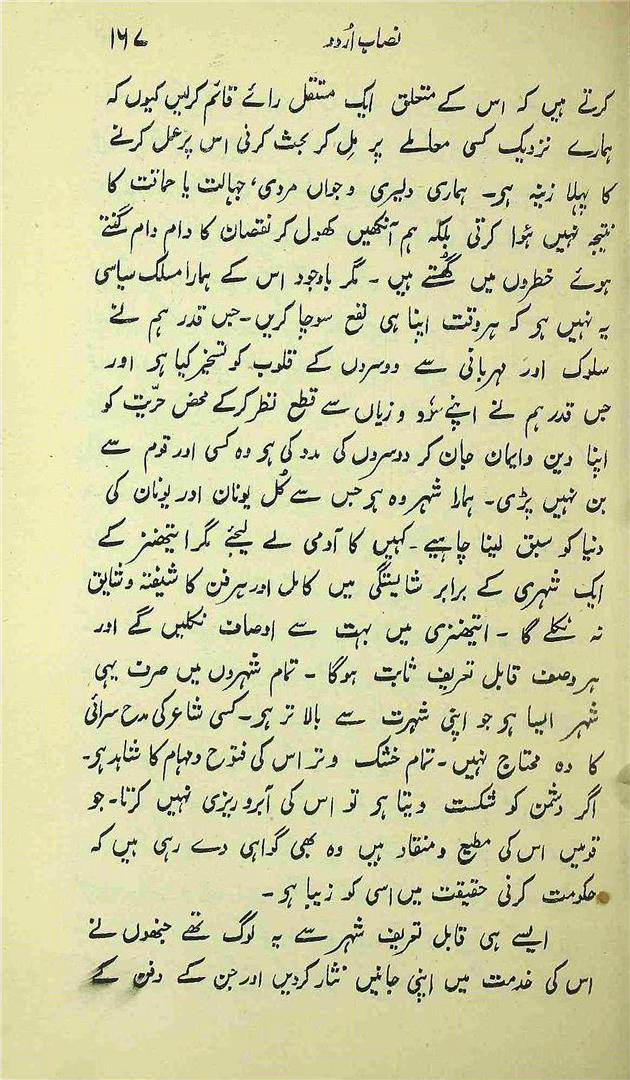 نصاب اُردو ۱۶۷
کرتے ہیں کہ اس کے متعلق ایک مستقل رائے قائم کرلیں کیوں کہ
ہمارے نزدیک کسی معاملے پر مِل کر بحث کرنی اس پر عمل کرنے
کا پہلا زینہ ہو۔ ہماری دلیری و جواں مردی، جہالت یا حماقت کا
نتیجہ نہیں ہوا کرتی بلکہ ہم آنکھیں کھول کر نقصان کا دام دام گنتے
ہوئے خطروں میں گھستے ہیں ۔ مگر باوجود اس کے ہمارا مسلک سیاسی
یہ نہیں ہو کہ ہر وقت اپنا ہی نفع سوچا کریں۔ جس قدر ہم نے
سلوک اور مہربانی سے دوسروں کے قلوب کو تسخیر کیا ہو اور
جس قدر ہم نے اپنے سود و زیاں سے قطع نظر کرکے محض حرّیت کو
اپنا دین و ایمان جان کر دوسروں کی مدد کی ہو وہ کسی اور قوم سے
بن نہیں پڑی۔ ہمارا شہر وہ ہو جس سے کُل یونان اور یونان کی
دنیا کو سبق لینا چاہیے ۔ کہیں کا آدمی لے لیجئے مگر ایتھنز کے
ایک شہری کے برابر شایستگی میں کامل اور ہر فن کا شیفتہ و شایق
نہ نکلے گا ۔ ایتھنزی میں بہت سے اوصاف نکلیں گے اور
ہر وصف قابل تعریف ثابت ہوگا ۔ تمام شہروں میں صرف یہی
شہر ایسا ہو جو اپنی شہرت سے بالا تر ہو۔ کسی شاعر کی مدح سرائی
کا وہ محتاج نہیں۔ تمام خشک و تر اس کی فتوح و مہام کا شاہد ہو۔
اگر دشمن کو شکست دیتا ہو تو اس کی آبرو ریزی نہیں کرتا۔ جو
قومیں اس کی مطیع و منقاد ہیں وہ بھی گواہی دے رہی ہیں کہ
حکومت کرنی حقیقت میں اسی کو زیبا ہو ۔
ایسے ہی قابل تعریف شہر سے یہ لوگ تھے جنھوں نے
اس کی خدمت میں اپنی جانیں نثار کردیں اور جن کے دفن کے